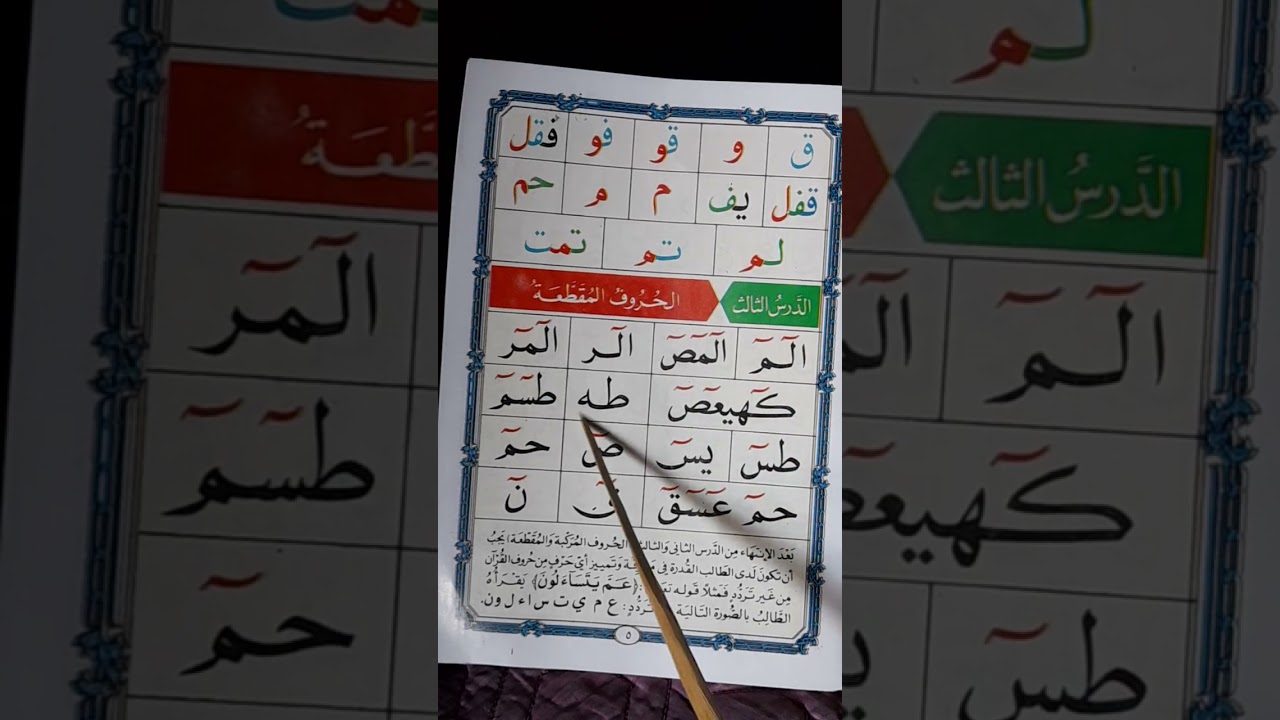 ق و قو فو فقل
قفل يف م م حم
لم تم تمت
الدَّرسُ الثالث الحُرُوفُ المُقَطَّعَةُ
الٓمٓ الٓمٓصٓ الٓر الٓمٓر
كٓهيعٓصٓ طه طسٓمٓ
طسٓ يسٓ صٓ حمٓ
حمٓ عٓسٓقٓ نٓ
بَعْدَ الإنْتِهَاء مِن الدَّرس الثَّانى وَالثَّالث الحُروف المُرَكبَة وَالمُقَطَّعَة يَجبُ
أن تكونَ لَدى الطَّالب القُدرة فى وَتَمييز أيّ حَرْفٍ مِن حُروف القُرآن
مِن غَير تَرَدُّدٍ فَمَثلاً قَوله ﴿عَمَّ يَتَسَاءَلُونَ﴾ يَقْرَأهُ
الطَّالِبُ بالصُّورة التَّاليَة تَرَدُّدٍ: ع م ي ت س ا ء ل و ن.
٥